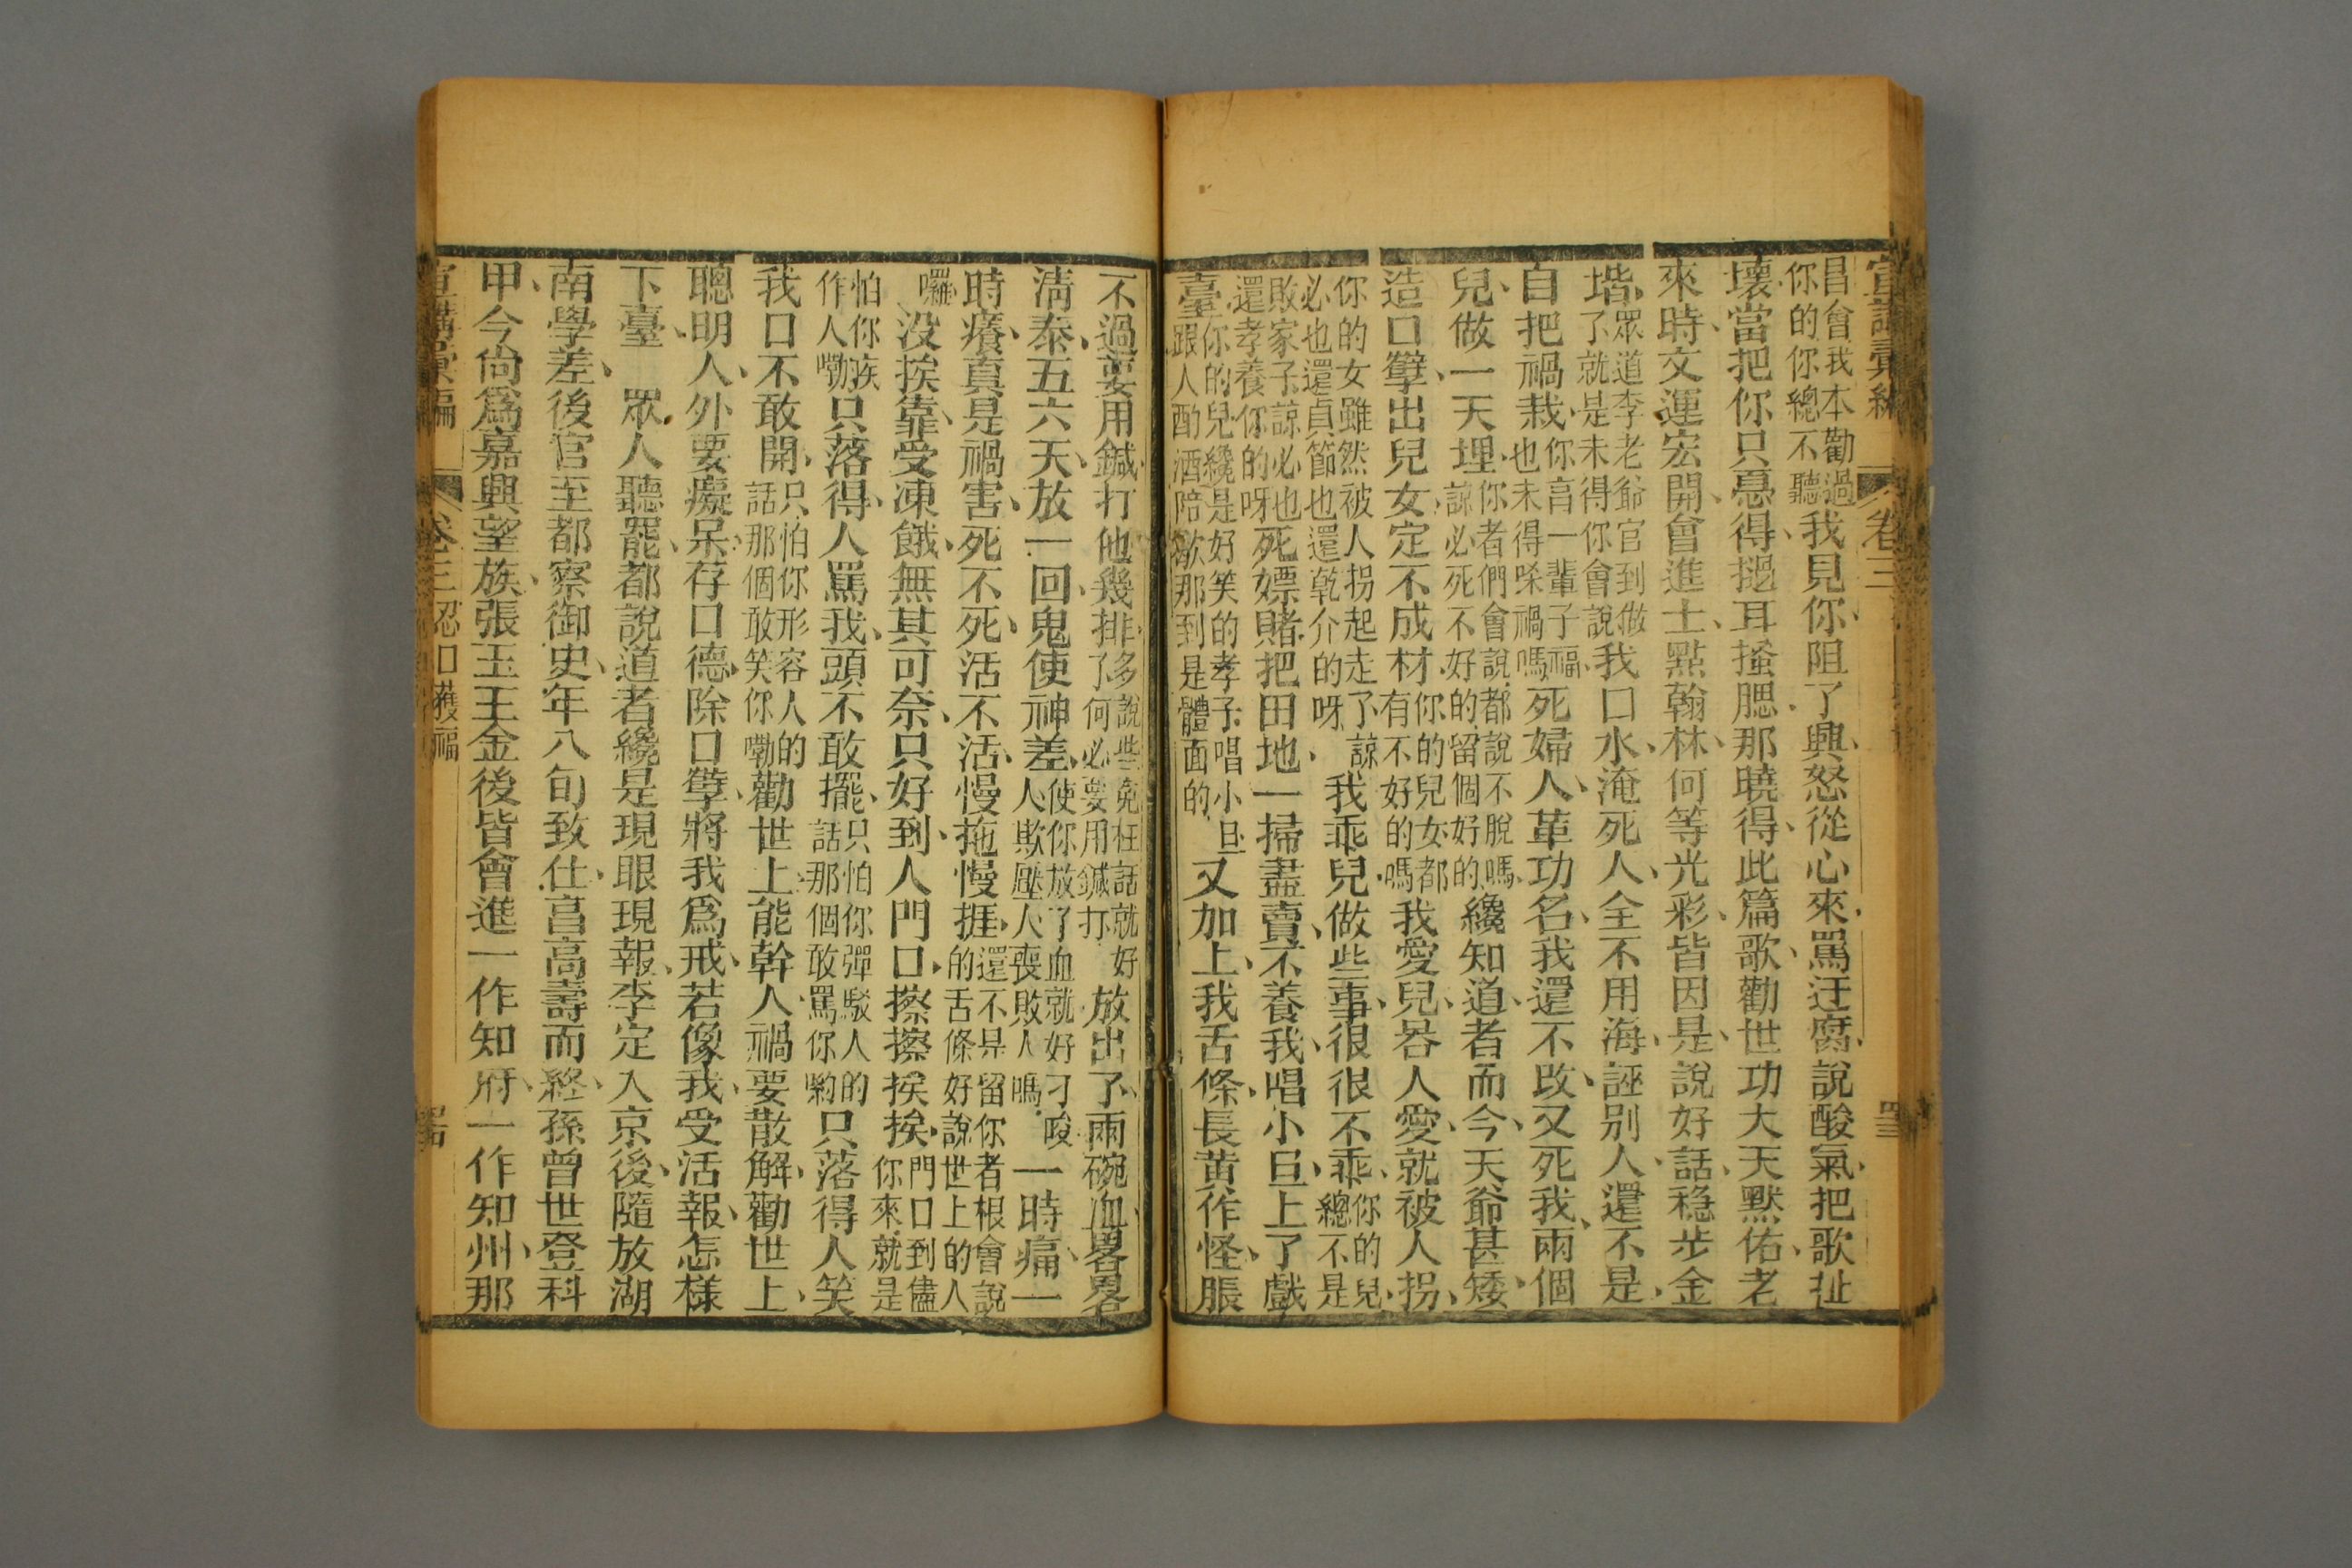 宣講彙編 卷三 四三
昌會我本勸過
你的你總不聽
我見你阻了興、怒從心來、罵迂腐、說酸氣、把歌扯
壞、當把你只惪得、挹耳搔腮、那曉得、此篇歌、勸世功大、天默佑、老
來時、文運宏開、會進士、點翰林、何等光彩、皆因是、說好話、穩步金
堦、
眾道李老爺官到做
了就是未得你會說
我口水、淹死人、全不用海、誣別人、還不是、
自把禍栽、
你亯一輩子福、
也未得嗓禍嗎
死婦人、革功名、我還不改、又死我、兩個
兒、做一天埋、
你者們會說、都說不脫嗎、
諒必死不好的、留個好的、
纔知道、者而今、天爺甚矮、
造口孽、出兒女、定不成材、
你的兒女都
有不好的嗎
我愛兒、畧人愛、就被人拐、
你的女雖然被人拐起走了諒
必也還貞節也還乾介的呀
我乖兒、做些事、很很不乖、
你的兒、
總不是
敗家子、諒必也
還孝養你的呀
死嫖賭、把田地、一掃盡賣、不養我、唱小旦、上了戲
臺、
你的兒纔是好笑的孝子唱小旦
跟人酌酒陪歇那到是體面的
又加上、我舌條、長黃作怪、脹
不過、要用鍼、打他幾排、
多說些免枉話就好
了何必要用鍼打
放出了、兩碗血、畧畧
清泰、五六天、放一回、鬼使神差、
使你放了血就好刁唆
人欺壓人喪敗人嗎、
一時痛、一
時癢、真是禍害、死不死、活不活、慢拖慢捱、
還不是留你者根會說
的舌條好說世上的人
囉
没挨靠、受凍餓、無其可奈、只好到、人門口、擦擦挨挨、
門口到儘
你來就是
怕你族
作人嘞
只落得、人罵我、頭不敢擺、
只怕你彈駁人的
話那個敢罵你喲
只落得、人笑
我、口不敢開、
只怕你形容人的
話那個敢笑你嘞
勸世上、能幹人、禍要散解、勸世上、
聰明人、外要癡呆、存口德、除口孽、將我爲戒、若像我、受活報、怎樣
下臺、　眾人聽罷、都說道者纔是現眼現報、李定入京後、隨放湖
南學差、後官至都察御史、年八旬致仕、昌高壽而終、孫曾世登科
甲、今尙爲嘉興望族、張玉王金後皆會進、一作知府、一作知州、那
宣講彙編 卷三 忍口獲福